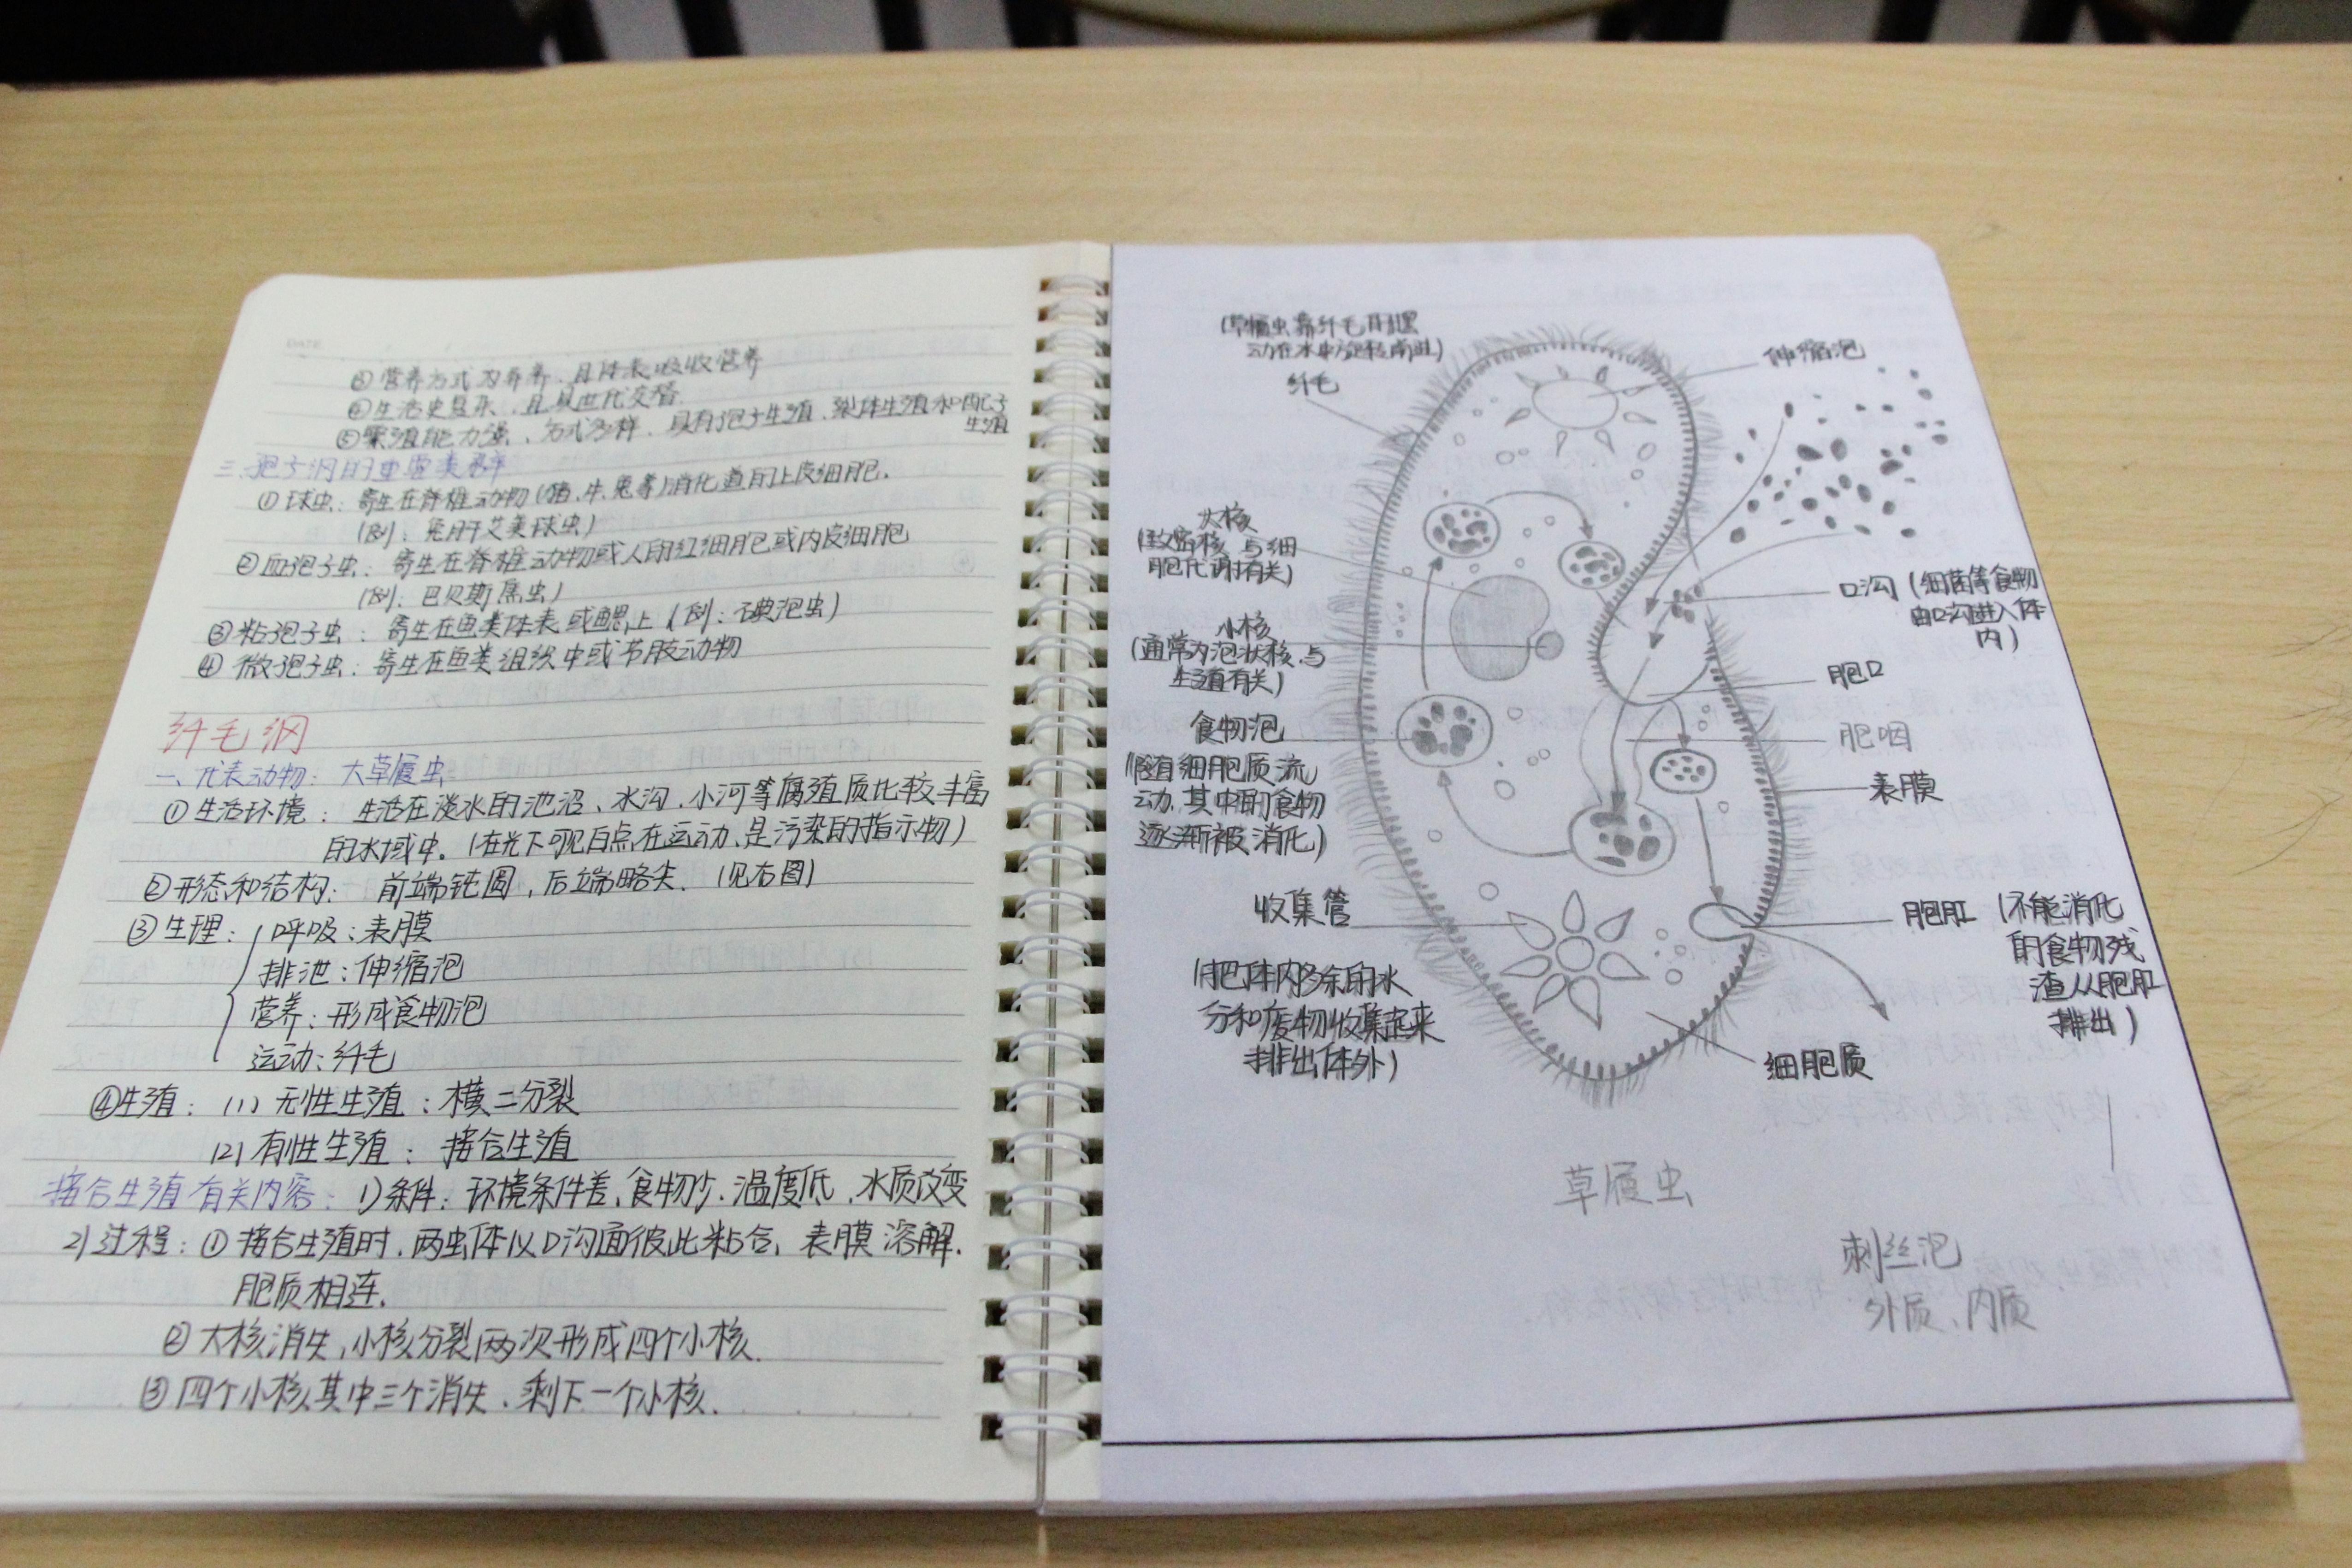 ③营养方式为异养、且体表吸收营养
④生活史复杂、且具世代交替
⑤繁殖能力强、方式多样、具有孢子生殖、裂体生殖和配子
生殖
三、孢子纲的重要类群
①球虫：寄生在脊椎动物(猪、牛、兔等)消化道的上皮细胞.
(例：兔肝艾美球虫)
②血孢子虫：寄生在脊椎动物或人的红细胞或内皮细胞
(例：巴贝斯焦虫)
③粘孢子虫：寄生在鱼类体表或鳃上(例：碘泡虫)
④微孢子虫：寄生在鱼类组织中或节肢动物
纤毛纲
一、代表动物：大草履虫
①生活环境：生活在淡水的池沼、水沟、小河等腐殖质比较丰富
的水域中。(在光下可见白点在运动、是污染的指示物)
②形态和结构：前端钝圆，后端略尖.(见右图)
③生理：呼吸：表膜
排泄：伸缩泡
营养：形成食物泡
运动：纤毛
④生殖：(1)无性生殖：横二分裂
(2)有性生殖：接合生殖
接合生殖有关内容：1)条件：环境条件差、食物少、温度低、水质改变
2)过程：①接合生殖时、两虫体以口沟面彼此粘合、表膜溶解.
胞质相连.
②大核消失,小核分裂两次形成四个小核.
③四个小核其中三个消失、剩下一个小核.
(草履虫靠纤毛的摆
动在水中旋转前进)
纤毛
伸缩泡
大核
(致密核、与细
胞代谢有关)
小核
(通常为泡状核、与
生殖有关)
食物泡
(随着细胞质流
动,其中的食物
逐渐被消化)
收集管
(把体内多余的水
分和废物收集起来
排出体外)
口沟(细菌等食物
由口沟进入体
内)
胞口
胞咽
表膜
胞肛(不能消化
的食物残
渣从胞肛
排出)
细胞质
草履虫
刺丝泡
外质、内质